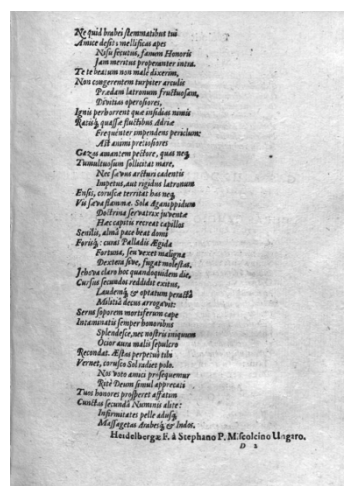 Ne quid brabei stemmatibus tui
Amice desit: mellificas apes
Nisu secutus, fanum Honoris
Jam meritus propemuter intra.
Te te beatum non malè dixerim,
Non congerentem turpiter arculis
Prædam latronum fructuosam,
Divitias operosiores,
Ignis perhorrent quæ insidias nimis
Ratisq́ quassæ fluctibus Adriæ
Frequenter impendens periclum:
Ast animi preciosiores
Gazas amantem pectore, quas neq́
Tumultuosum sollicitat mare,
Nec sævus arcturi cadentis
Impetus, aut rigidus latronum
Ensis, coruscæ territat has neq́
Vis sæva flammæ. Sola Aganippidum
Doctrina servatrix juventæ
Hæc capitis recreat capillos
Senilis, almâ pace beat domi
Forisq́: curas Palladis Ægida
Fortuna, seu vexet maligna
Dextera sive, fugat molestas.
Jehova claro hoc quandoquidem die,
Cursus secundos reddidit exitus,
Laudemq́ & optatum peractâ
Militiâ decus arrogavit:
Serus soporem mortiferum cape
Intaminatis semper honoribus
Splendesce, nec nostris iniquum
Ocior aura malis sepulcro
Recondat. Æstas perpetuò tibi
Vernet, corusco Sol radiet polo.
Nos voto amici prosequemur
Ritè Deum simul apprecati
Tuos honores prosperet affatim
Cunctas secundâ Numinis alite:
Infirmitates pelle adusq́
Massagetas Arabesq́ & Indos.
Heidelbergæ F. à Stephano P. Miscolcino Ungaro.
D 2